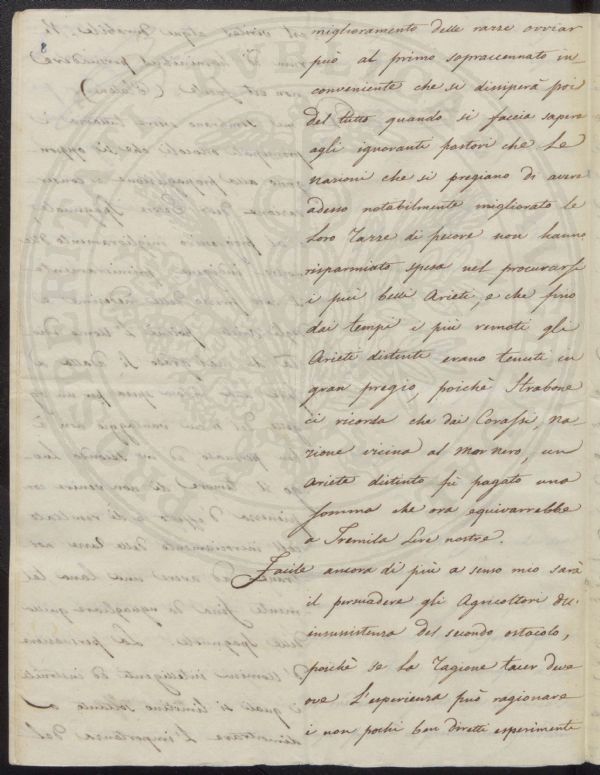 8
miglioramento delle razze ovviar
può al primo sopraccennato in-
conveniente che si dissiperà poi
del tutto quando si faccia sapere
agli ignoranti pastori che le
nazioni che si pregiano di avere
adesso notabilmente migliorato le
loro razze di pecore non hanno
risparmiato spesa nel procurarsi
i più belli Arieti, e che fino
dai tempi i più remoti gli
Arieti distinti erano tenuti in
gran pregio, poichè Strabone
ci ricorda che dai Corassi, na-
zione vicina al mar nero, un
Ariete distinto si pagato una
somma che ora equivarrebbe
a Tremila Lire nostre.
Facile ancora di più a senso mio sarà
il persuadere gli Agricoltori dell'
insussistenza del secondo ostacolo,
poichè se la ragione tacer deve
ove l'esperienza può ragionare
i non pochi ben diretti esperimenti